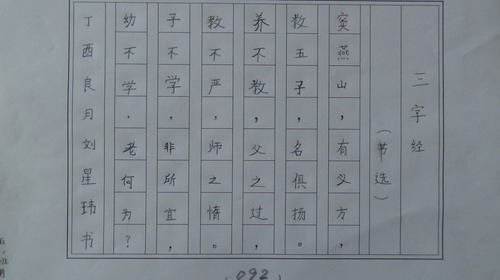 三字经
(节选)
窦燕山,有义方,
教五子,名俱扬。
养不教,父之过,
教不严,师之惰。
子不学,非所宜,
幼不学,老何为?
丁酉良月刘星玮书
092